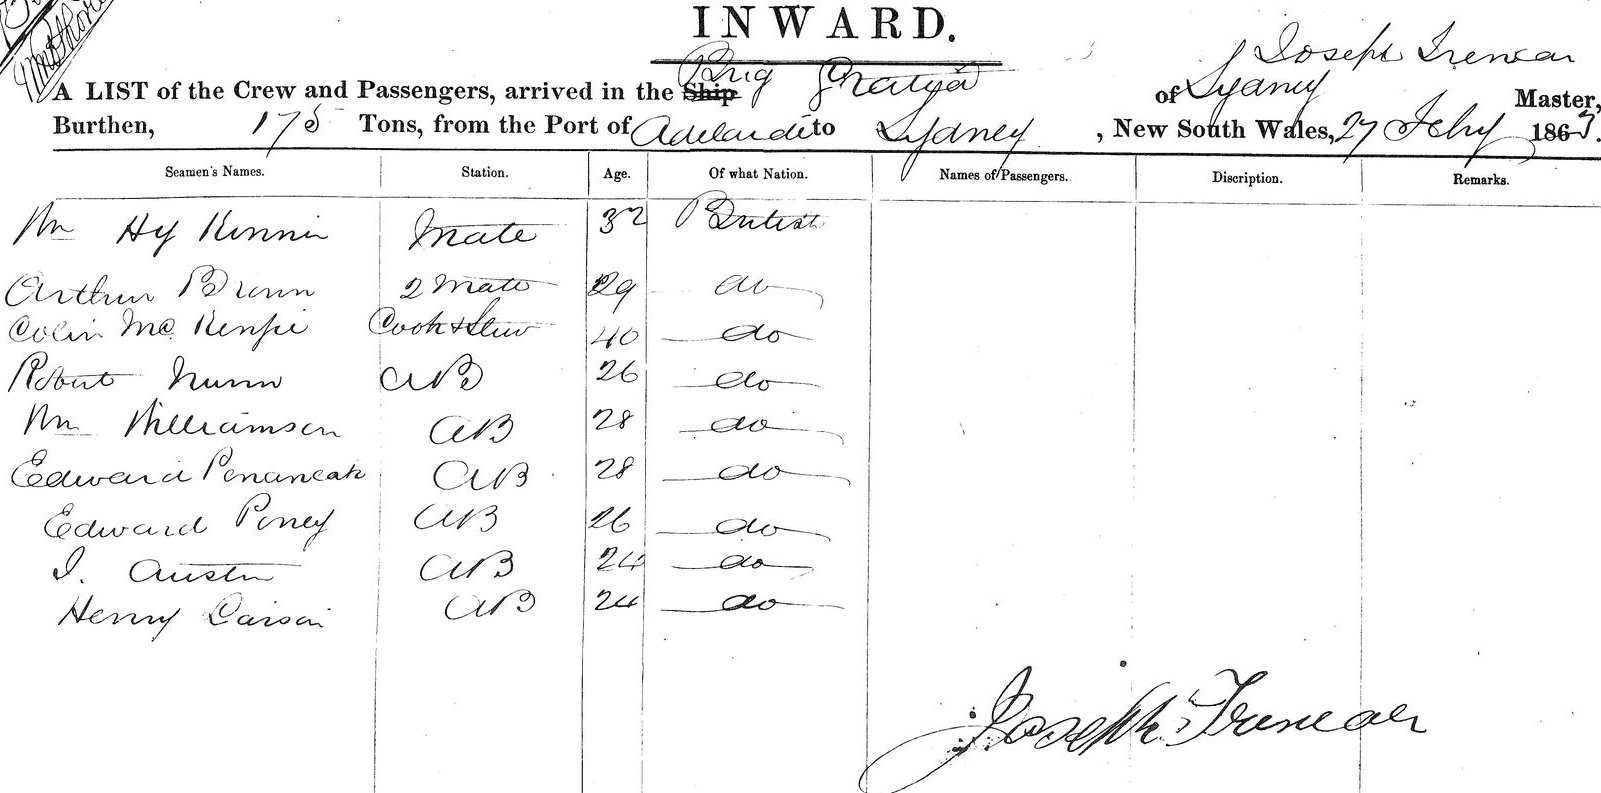 INWARD.
Joseph Trenear
A LIST of the Crew and Passengers, arrived in the Ship Brig Gratia of Sydney Master,
Burthen, 175 Tons, from the Port of Adelaide to Sydney, New South Wales, 27 Feby 1863.
Seamen's Names. Station. Age. Of what Nation. Names of Passengers. Discription. Remarks.
Wm Hy Mate 32 British
Arthur Brown 2 Mate 29 do
Colin McKenzie Cook & Stew 40 do
Robert Nunn AB 26 do
Wm Williamson AB 28 do
Edward AB 28 do
Edward AB 26 do
J. Austin AB 24 do
Henry AB 24 do
Joseph Trenear